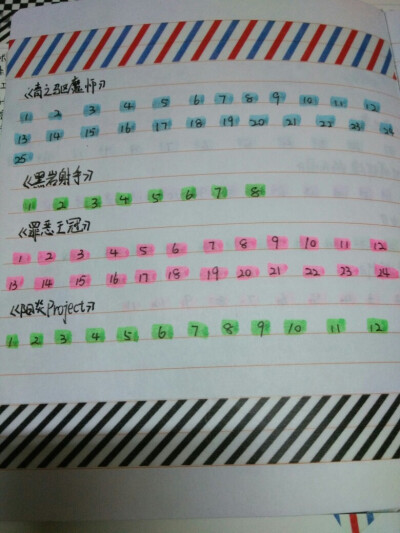 《青之驱魔师》
1 2 3 4 5 6 7 8 9 10 11 12
13 14 15 16 17 18 19 20 21 22 23 24
25
《黑岩射手》
1 2 3 4 5 6 7 8
《罪恶王冠》
1 2 3 4 5 6 7 8 9 10 11 12
13 14 15 16 17 18 19 20 21 22 23 24
《阳炎Project》
1 2 3 4 5 6 7 8 9 10 11 12